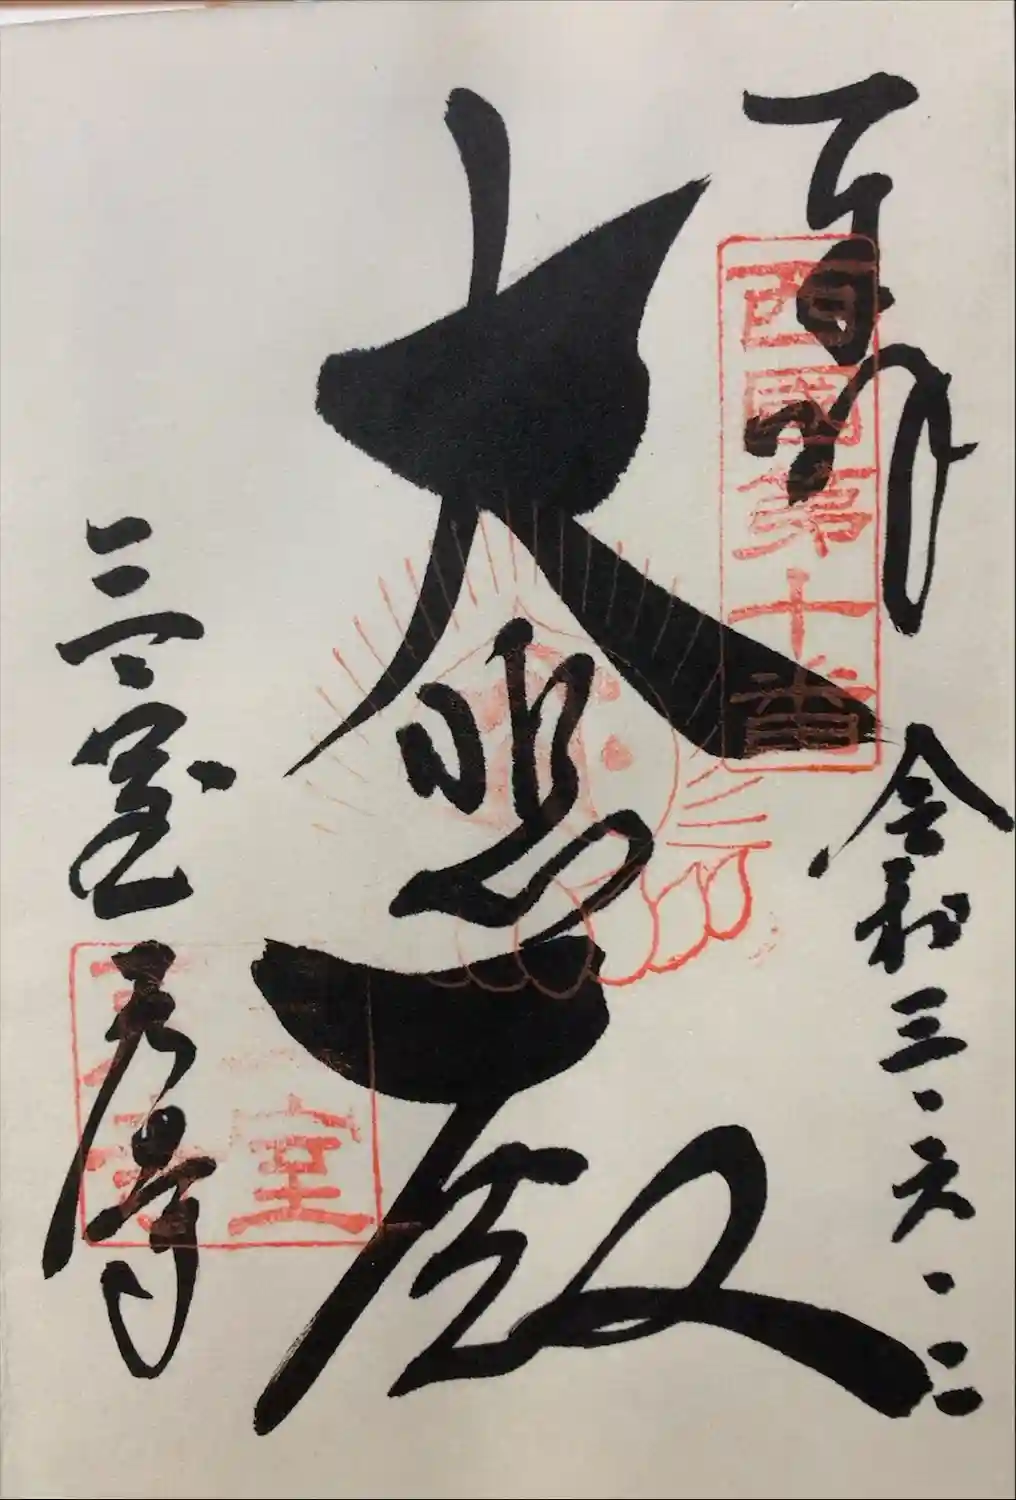 百拝
西國第十番
令和三・六・二
大悲殿
三室戸寺